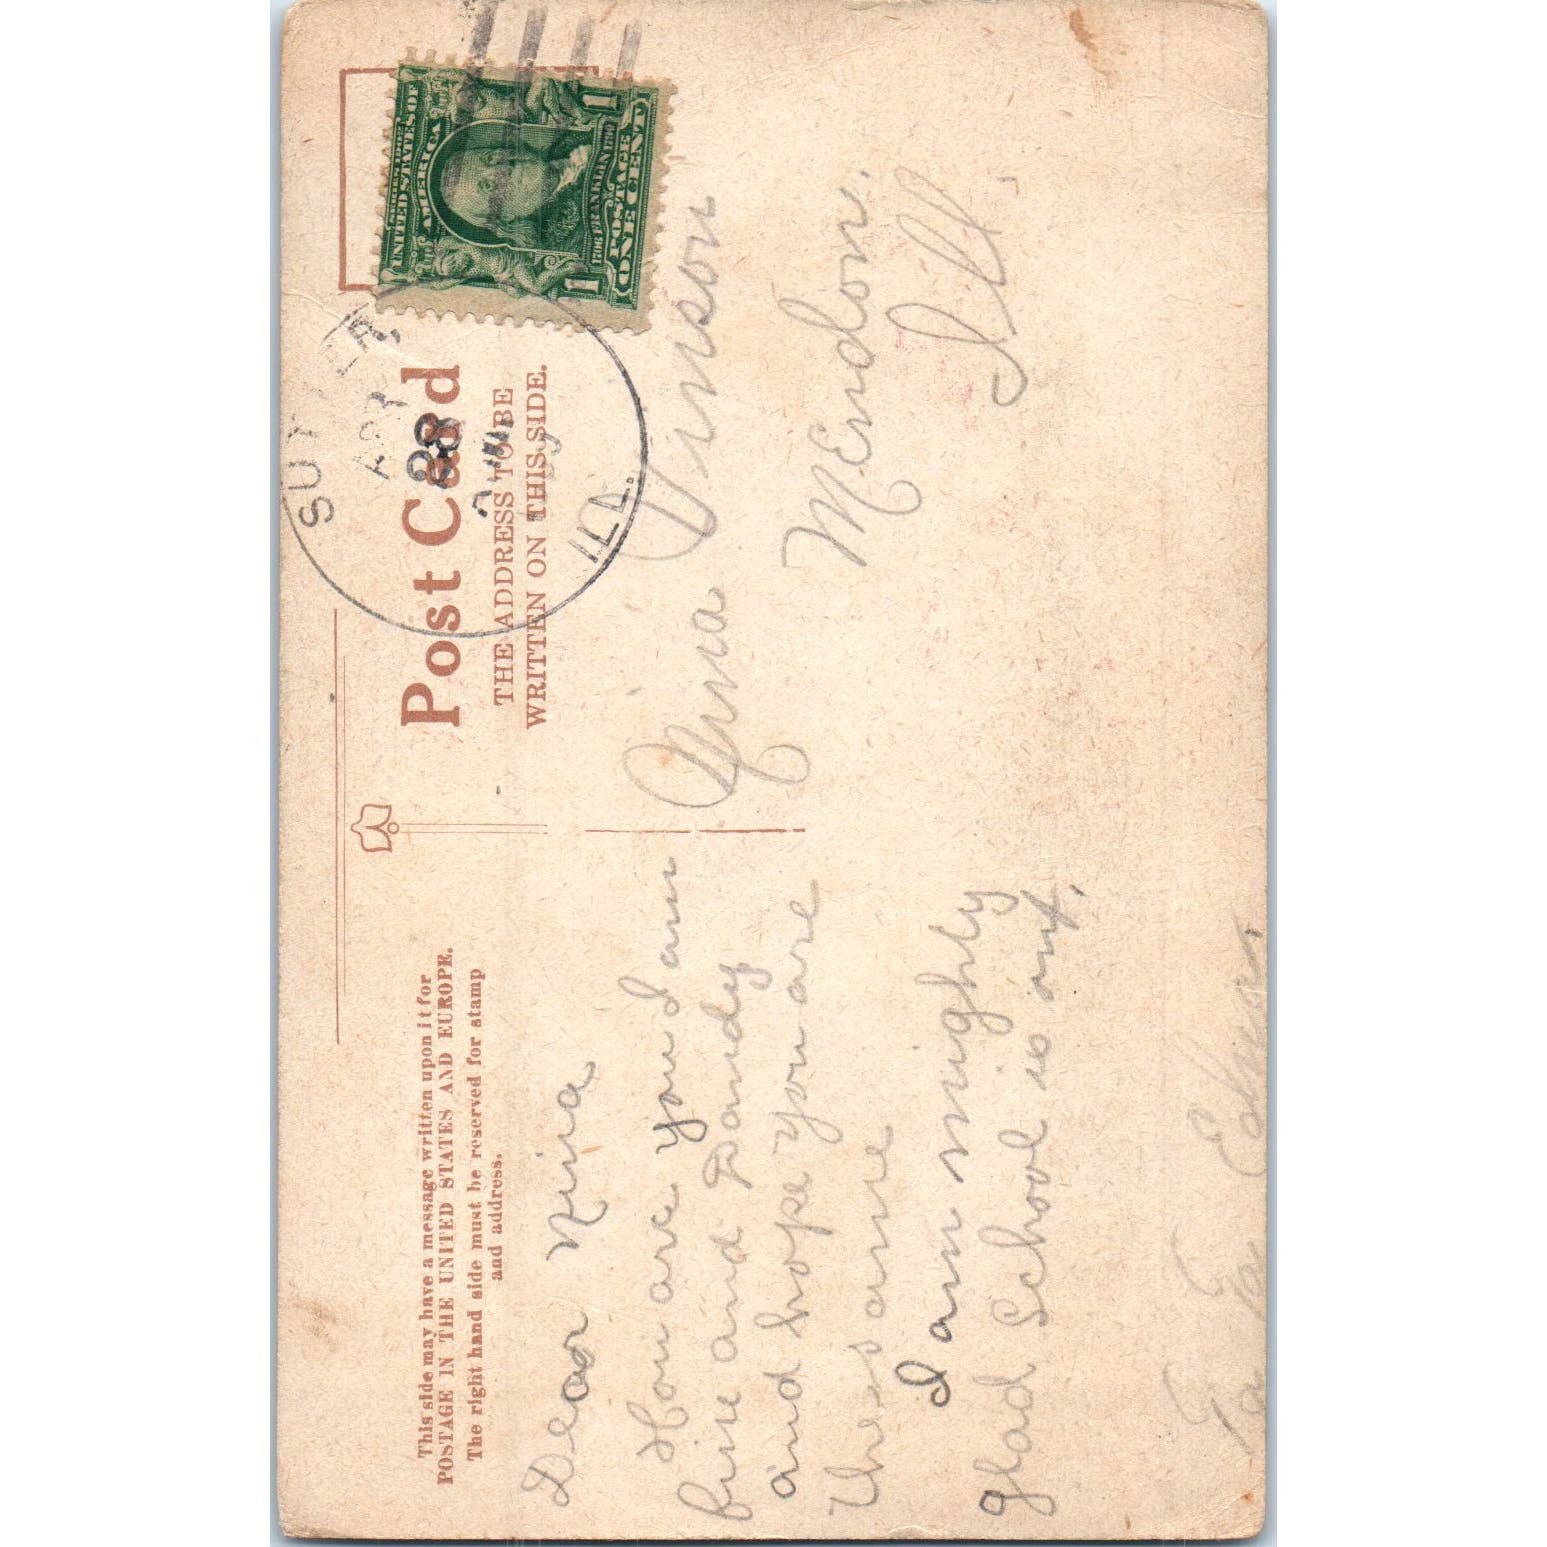 This side may have a message written upon it for
POSTAGE IN THE UNITED STATES AND EUROPE.
The right hand side must be reserved for stamp
and address.
Post Card
THE ADDRESS TO BE
WRITTEN ON THIS SIDE.
UNITED STATES OF
AMERICA
FRANKLIN
POSTAGE
ONE CENT
1 1
APR
28
ILL.
Dear Nina
How are you I am
fine and Dandy
and hope you are
the same
I am mighty
glad School is out.
Nina Vinson
Mendon.
Ill.